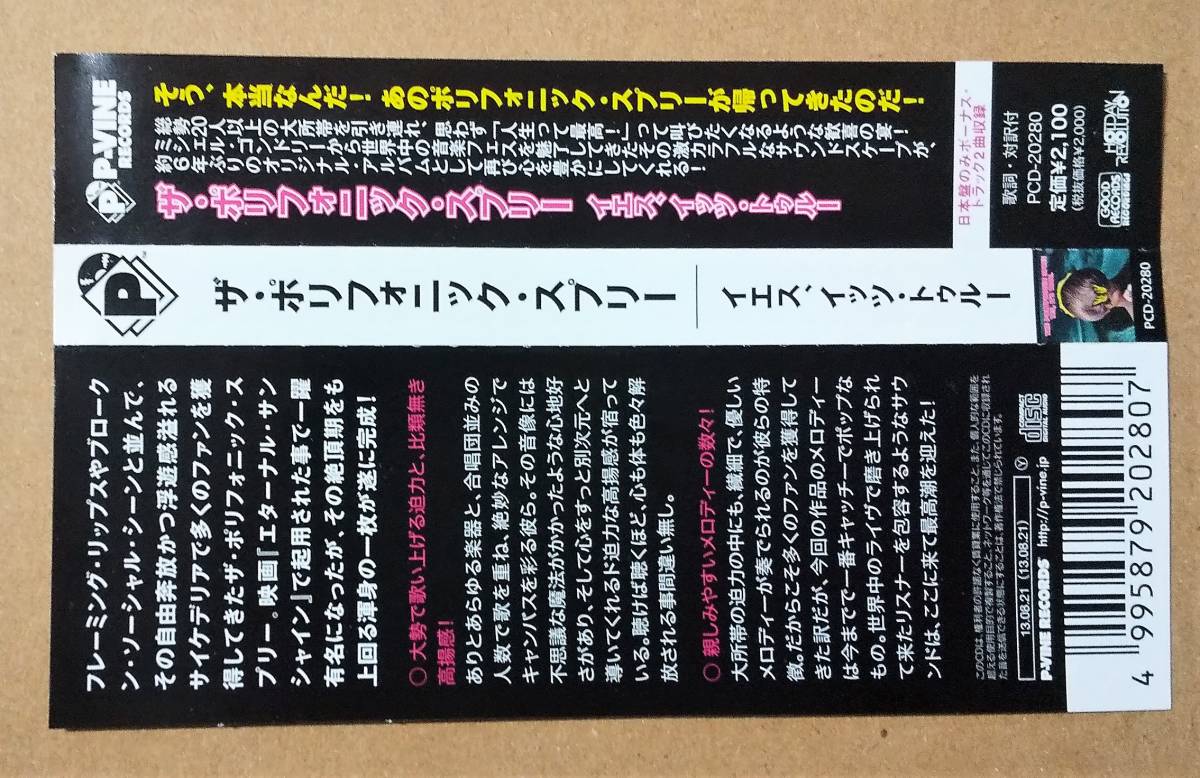 P-VINE
RECORDS
そう、本当なんだ！あのポリフォニック・スプリーが帰ってきたのだ！
総勢20人以上の大所帯を引き連れ、思わず「人生って最高！」って叫びたくなるような歓喜の宴！
ミシェル・ゴンドリーから世界中の音楽フェスを魅了してきたその激カラフルなサウンドスケープが、
約6年ぶりのオリジナル・アルバムとして再び心を豊かにしてくれる！
ザ・ポリフォニック・スプリー イエス、イッツ・トゥルー
日本盤のみボーナス・
トラック2曲収録
歌詞・対訳付
PCD-20280
定価¥2,100
(税抜価格¥2,000)
GOOD
RECORDS
RECORDINGS
P
ザ・ポリフォニック・スプリー
イエス、イッツ・トゥルー
PCD-20280
フレーミング・リップスやブローク
ン・ソーシャル・シーンと並んで、
その自由奔放かつ浮遊感溢れる
サイケデリアで多くのファンを獲
得してきたザ・ポリフォニック・ス
プリー。映画『エターナル・サン
シャイン』で起用された事で一躍
有名になったが、その絶頂期をも
上回る渾身の一枚が遂に完成！
○ 大勢で歌い上げる迫力と、比類無き
高揚感！
ありとあらゆる楽器と、合唱団並みの
人数で歌を重ね、絶妙なアレンジで
キャンバスを彩る彼ら。その音像には
不思議な魔法がかかったような心地好
さがあり、そして心をすっと別次元へと
導いてくれるド迫力な高揚感が宿って
いる。聴けば聴くほど、心も体も色々解
放される事間違い無し。
○ 親しみやすいメロディーの数々！
大所帯の迫力の中にも、繊細で、優しい
メロディーが奏でられるのが彼らの特
徴。だからこそ多くのファンを獲得して
きた訳だが、今回の作品のメロディー
は今までで一番キャッチーでポップな
もの。世界中のライヴで磨き上げられ
て来たリスナーを包容するようなサウ
ンドは、ここに来て最高潮を迎えた！
このCDは、権利者の許諾なく賃貸業に使用すること、また、個人的な範囲を
超える使用目的で複製すること、ネットワーク等を通じてこのCDに収録され
た音を送信できる状態にすることは、著作権法で禁じられています。
COMPACT
disc
DIGITAL AUDIO
13.08.21 (13.08.21) Y
P-VINE RECORDS http://p-vine.jp
4 995879 202807